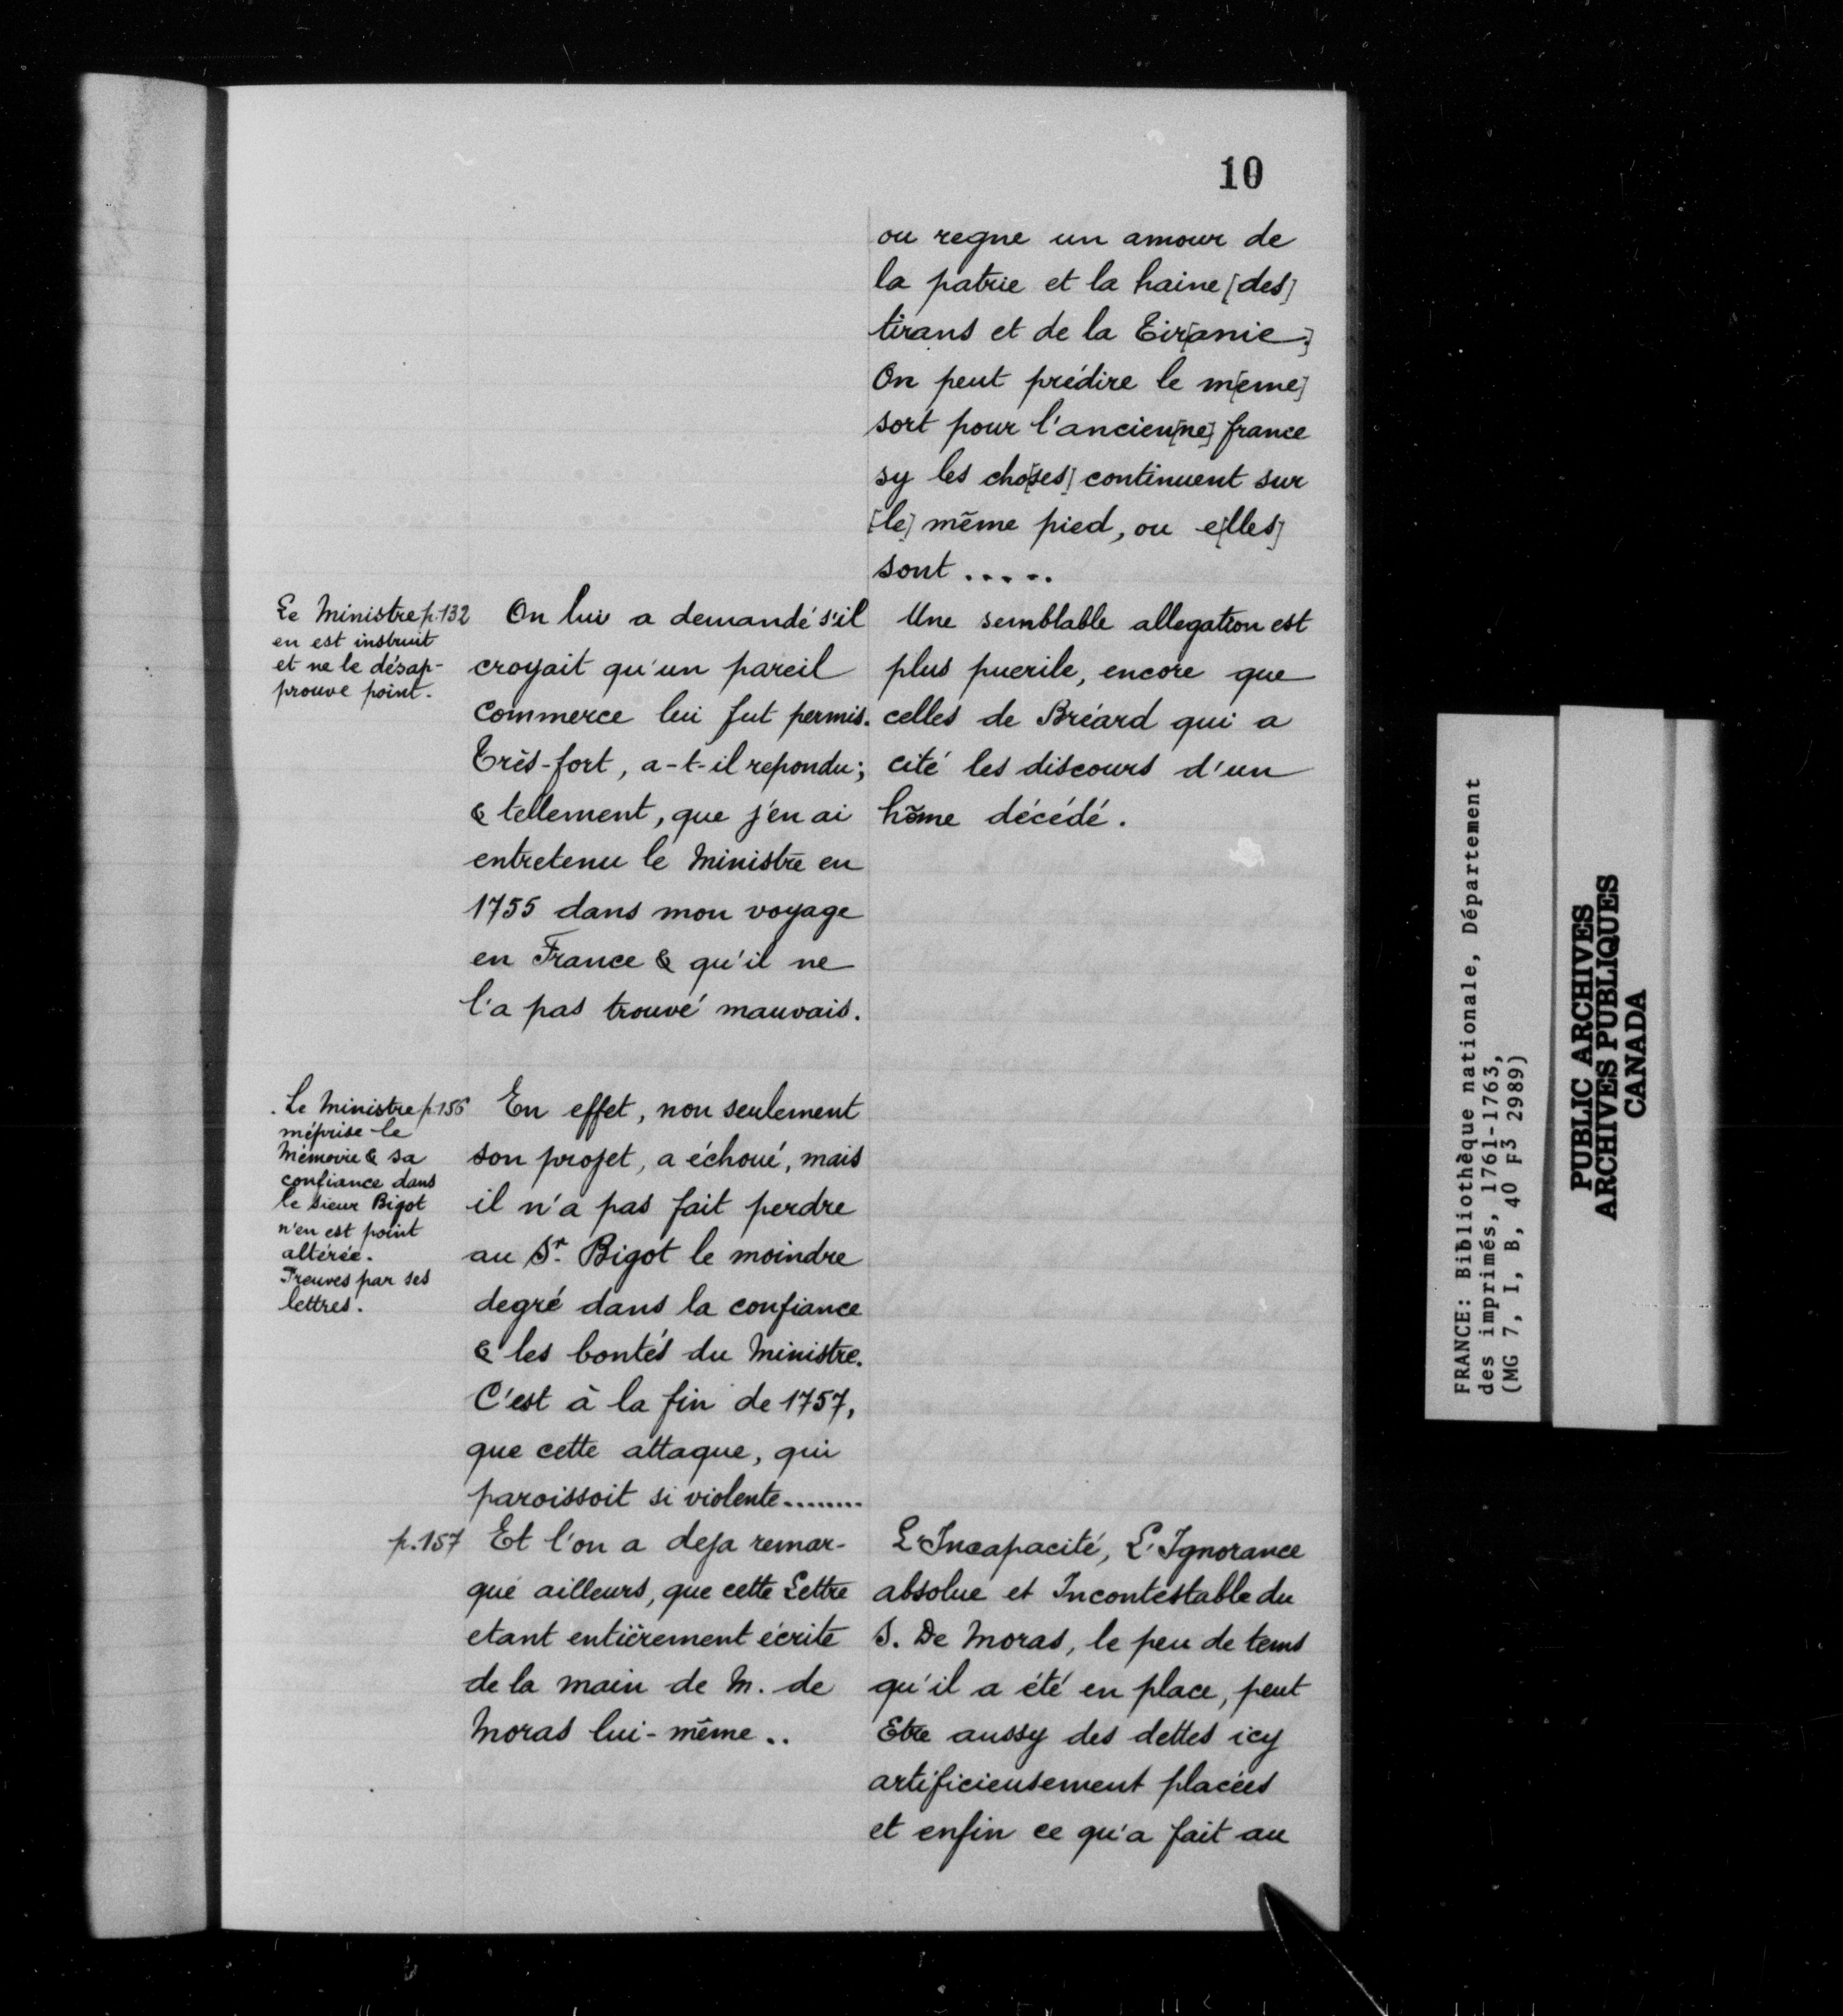 10
ou regne un amour de
la patrie et la haine [des]
tirans et de la Tir[anie.]
On peut prédire le m[eme]
sort pour l'ancien[ne] france
sy les cho[ses] continuent sur
[le] même pied, ou e[lles]
sont .....
Le Ministre p.132
en est instruit
et ne le désap-
prouve point.
On lui a demandé s'il
croyait qu'un pareil
Commerce lui fut permis.
Très-fort, a-t-il repondu;
& tellement, que j'en ai
entretenu le Ministre en
1755 dans mon voyage
en France & qu'il ne
l'a pas trouvé mauvais.
Une semblable allegation est
plus puerile, encore que
celles de Bréard qui a
cité les discours d'un
hõme décédé.
Le Ministre p.156
méprise le
Mémoire & sa
confiance dans
le Sieur Bigot
n'en est point
altérée.
Preuves par ses
lettres.
En effet, non seulement
son projet, a échoué, mais
il n'a pas fait perdre
au Sr. Bigot le moindre
degré dans la confiance
& les bontés du Ministre.
C'est à la fin de 1757,
que cette attaque, qui
paroissoit si violente........
p.157
Et l'on a deja remar-
qué ailleurs, que cette Lettre
etant entièrement écrite
de la main de M. de
Moras lui-même ..
L'Incapacité, L'Ignorance
absolue et Incontestable du
S. De Moras, le peu de tems
qu'il a été en place, peut
Etre aussy des dettes icy
artificieusement placées
et enfin ce qu'a fait au
FRANCE: Bibliothèque nationale, Département
des imprimés, 1761-1763,
(MG 7, I, B, 40 F3 2989)
PUBLIC ARCHIVES
ARCHIVES PUBLIQUES
CANADA